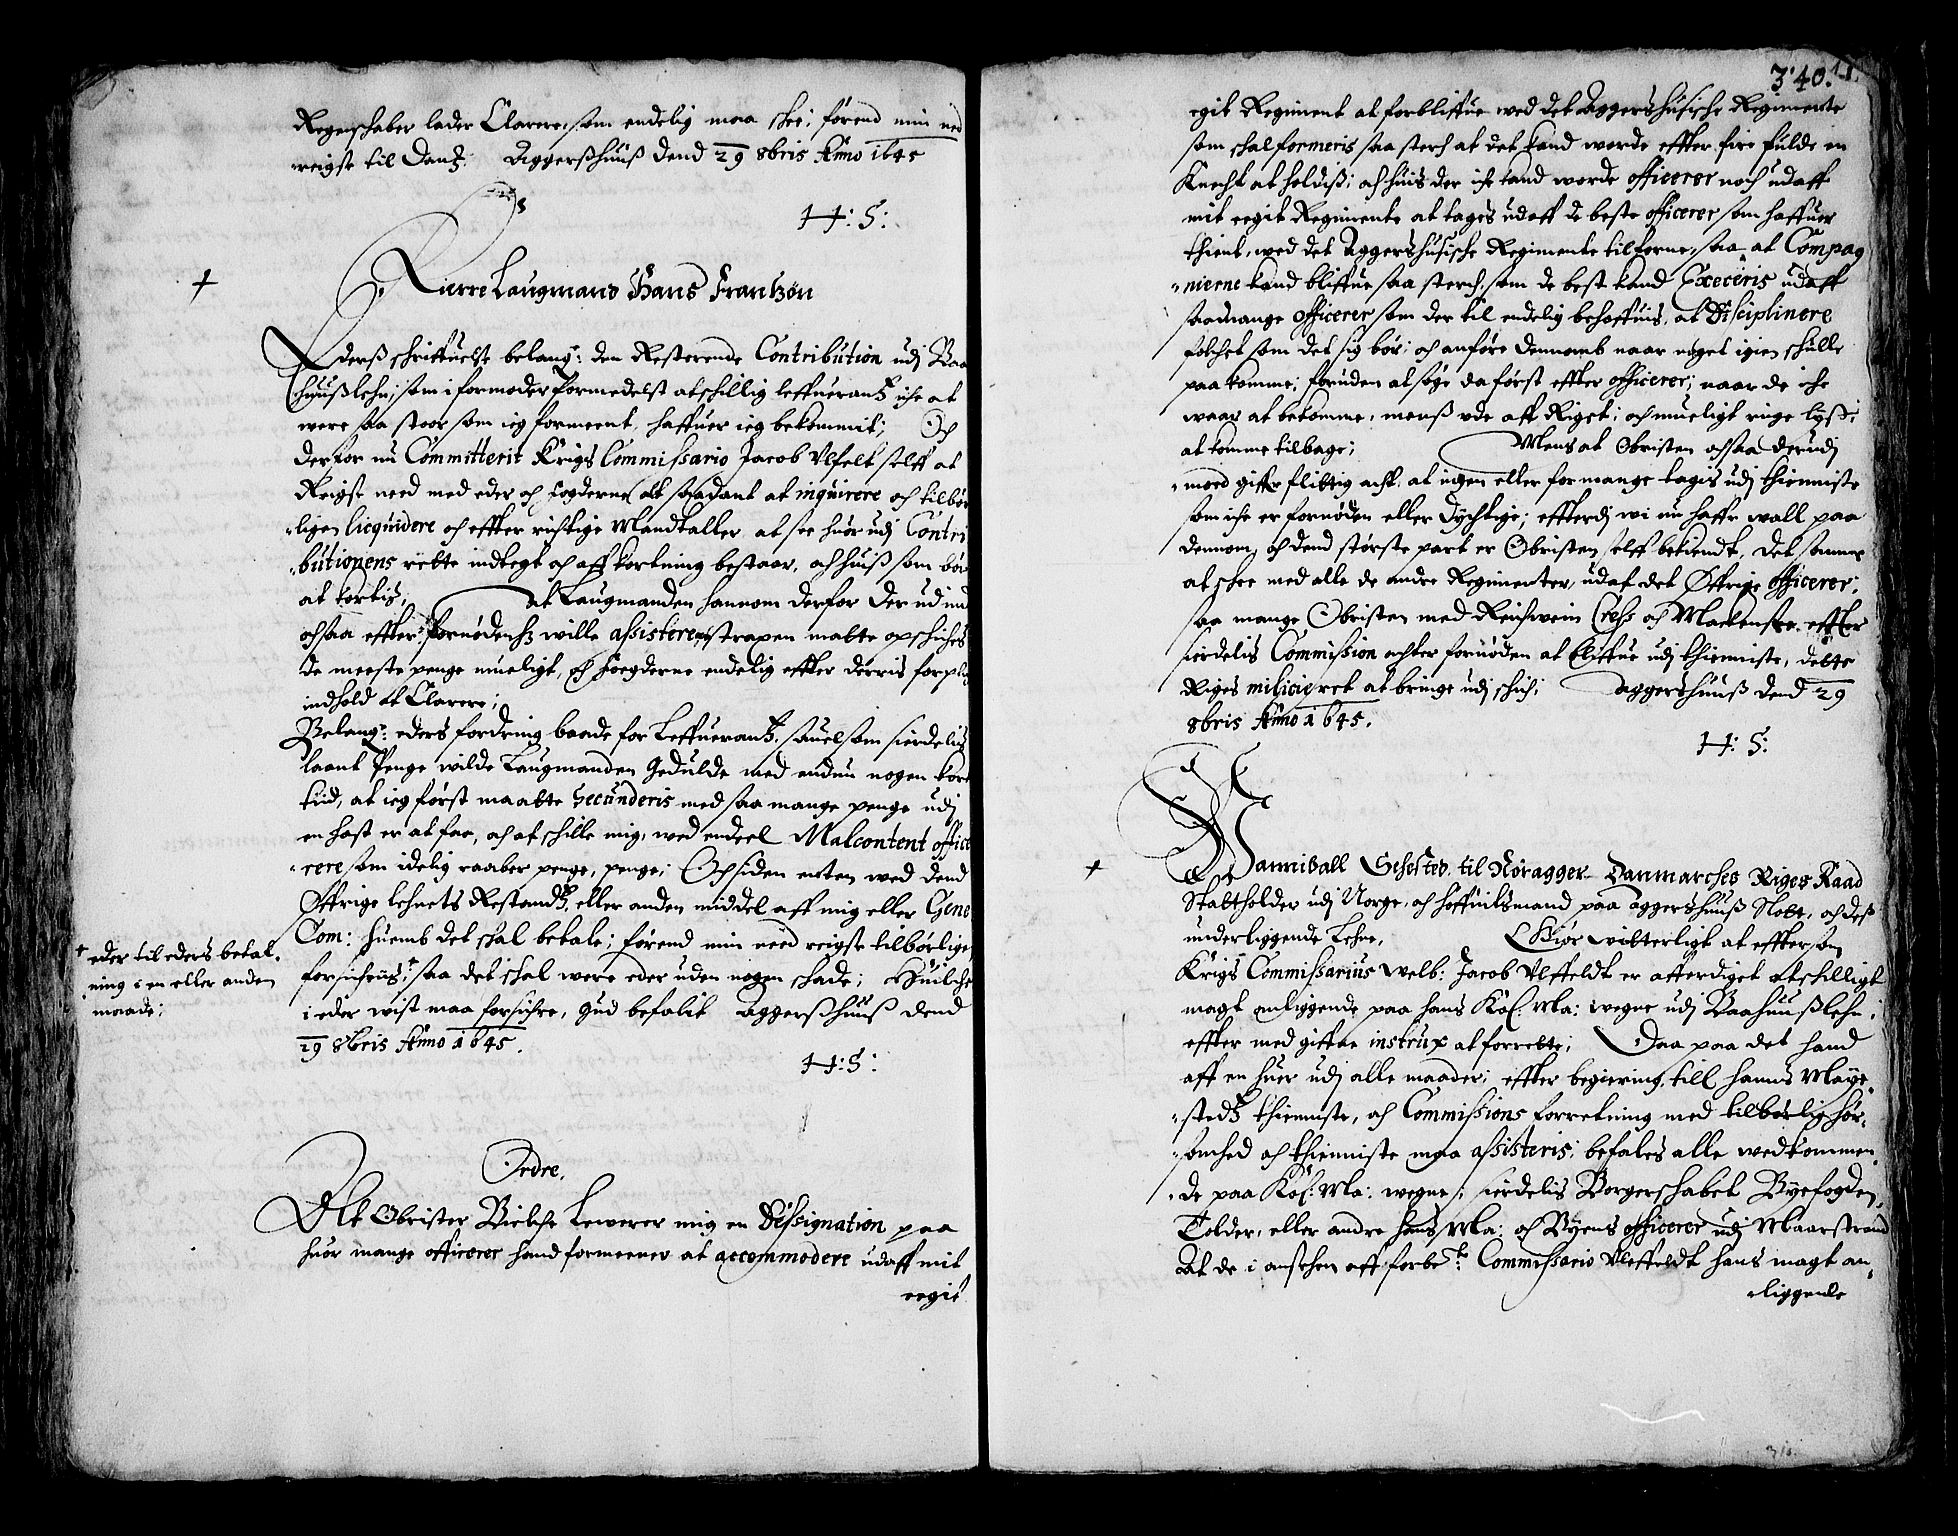 Regenschaber lader Clarere, som endelig maa skee; førend min ned
reigse til Danß: Aggerßhuuß Dend 29 8bris Anno 1645
H: S:
Kierre Laugmand Hans Frantzøn
Ederß schriffuelse belang: den Resterende Contribution udj Baa
huußlehn; som i formoder formedelst atschillig leffuerantz iche at
were saa stoor som ieg formeent, haffuer ieg bekommit; Och
derfor nu Committerit Krigs Commissario Jacob Ulfelt self at
Reigse need med eder och fogderne alt saadant at inquirere och tilbør
ligen licquidere och effter richtige Mandtaller at see huor udj Contri
butionens rette indtegt och affkortning bestaar, och huiß som bør
at kortis; at Laugmanden hannom derfor der ud ind
ochsaa effter fornødenhz wille assistere, straxen matte opschiches
de meeste penge mueligt, och foegderne endelig effter derris forpl
indhold at Clarere;
Belang: eders fordring baade for Leffuerantz, sauelsom sierdelis
laant Penge wilde Laugmanden Gedulde med endnu nogen kort
tiid, at ieg først maatte Secunderis med saa mange penge udj
en hast er at faa, och at schille mig, wed endeel Malcontent office
rere som idelig raaber penge, penge; Och siden enten wed dend
Øffrige lehnets Restandtz, eller anden middel aff mig eller Gene
Com: huemb det skal betale; førend min need reigse tilbørlige
forsichris: + saa det skal were eder uden nogen skade; Huilche
i eder wist maa forsichre, gud befalit Aggerßhuuß dend
29 8bris Anno 1645.
H: S:
+ eder til eders betal
ning i en eller anden
maade;
Ordre.
At Obrister Bielche Leverer mig en Dissignation paa
huor mange officerer hand formeener at accommodere udaff mit
eegit
340.
egit Regiment at forbliffue wed det Aggershusische Regimente
som skal formeris saa sterch at det kand worde effter fire fulde en
Knecht at holdiß; och huis der iche kand worde officerer noch udaff
mit eegit Regimente at tages udaff de beste officerer som haffuer
thient, wed det Aggershusische Regimente tilforne, saa at Compag
nierne kand bliffue saa sterch, som de best kand Exeeris udaff
saadnange officerer som der til endelig behoffuis, at Disciplinere
folchet som det sig bør; och anføre dennomb naar noget igien schulle
paa komme; foruden at søge da først effter officerer; naar de iche
waar at bekomme, menß ude aff Rigst; och mueligt ringe lyst
at komme tilbage; Mens at Obristen ochsaa derudj
moed giffr flittig acht, at ingen eller for mange tagis udj thienniste
som iche er fornøden eller dychtige; effterdj wi nu haffr wall paa
dennom, och dend største part er Obristen self bekiendt, det samme
at skee med alle de andre Regimenter, udaf det Øffrige officerer;
saa mange Obristen med Reichwein Creß och Maekenstre effter
sierdelis Commission achter fornøden at bliffue udj thienniste, dette
Riges milicie ret at bringe udj schich; Aggershuuß dend 29
8bris Anno 1645.
H: S:
Hannibal Sehested til Nøragger Danmarches Riges Raad
Stattholder udj Norge, och høffuitzmand paa Aggershuuß Slott, och deß
underliggende Lehne, Giør witterligt at effterson
Krigs Commissarius welb: Jacob Ulffeldt er afferdiget atskilligt
magt anliggende paa hans Køl. Ma: wegne udj Baahuußlehn
effter med giffne instrux at forrette; Daa paa det hand
aff en huer udj alle maader; effter begiering till hanns Maye
stedtz thienniste, och Commissions forretning med tilbørlig hør
somhed och thienniste maa assisteris; befales alle wedkommen
de paa Kol: Ma: wegne sierdelis Borgerschabet Byefogden
Tolder, eller andre hans Ma: och Byens officerer udj Maarstrand
At de i ansehen aff forbe: Commissario Ulffeldt hans magt an
liggende